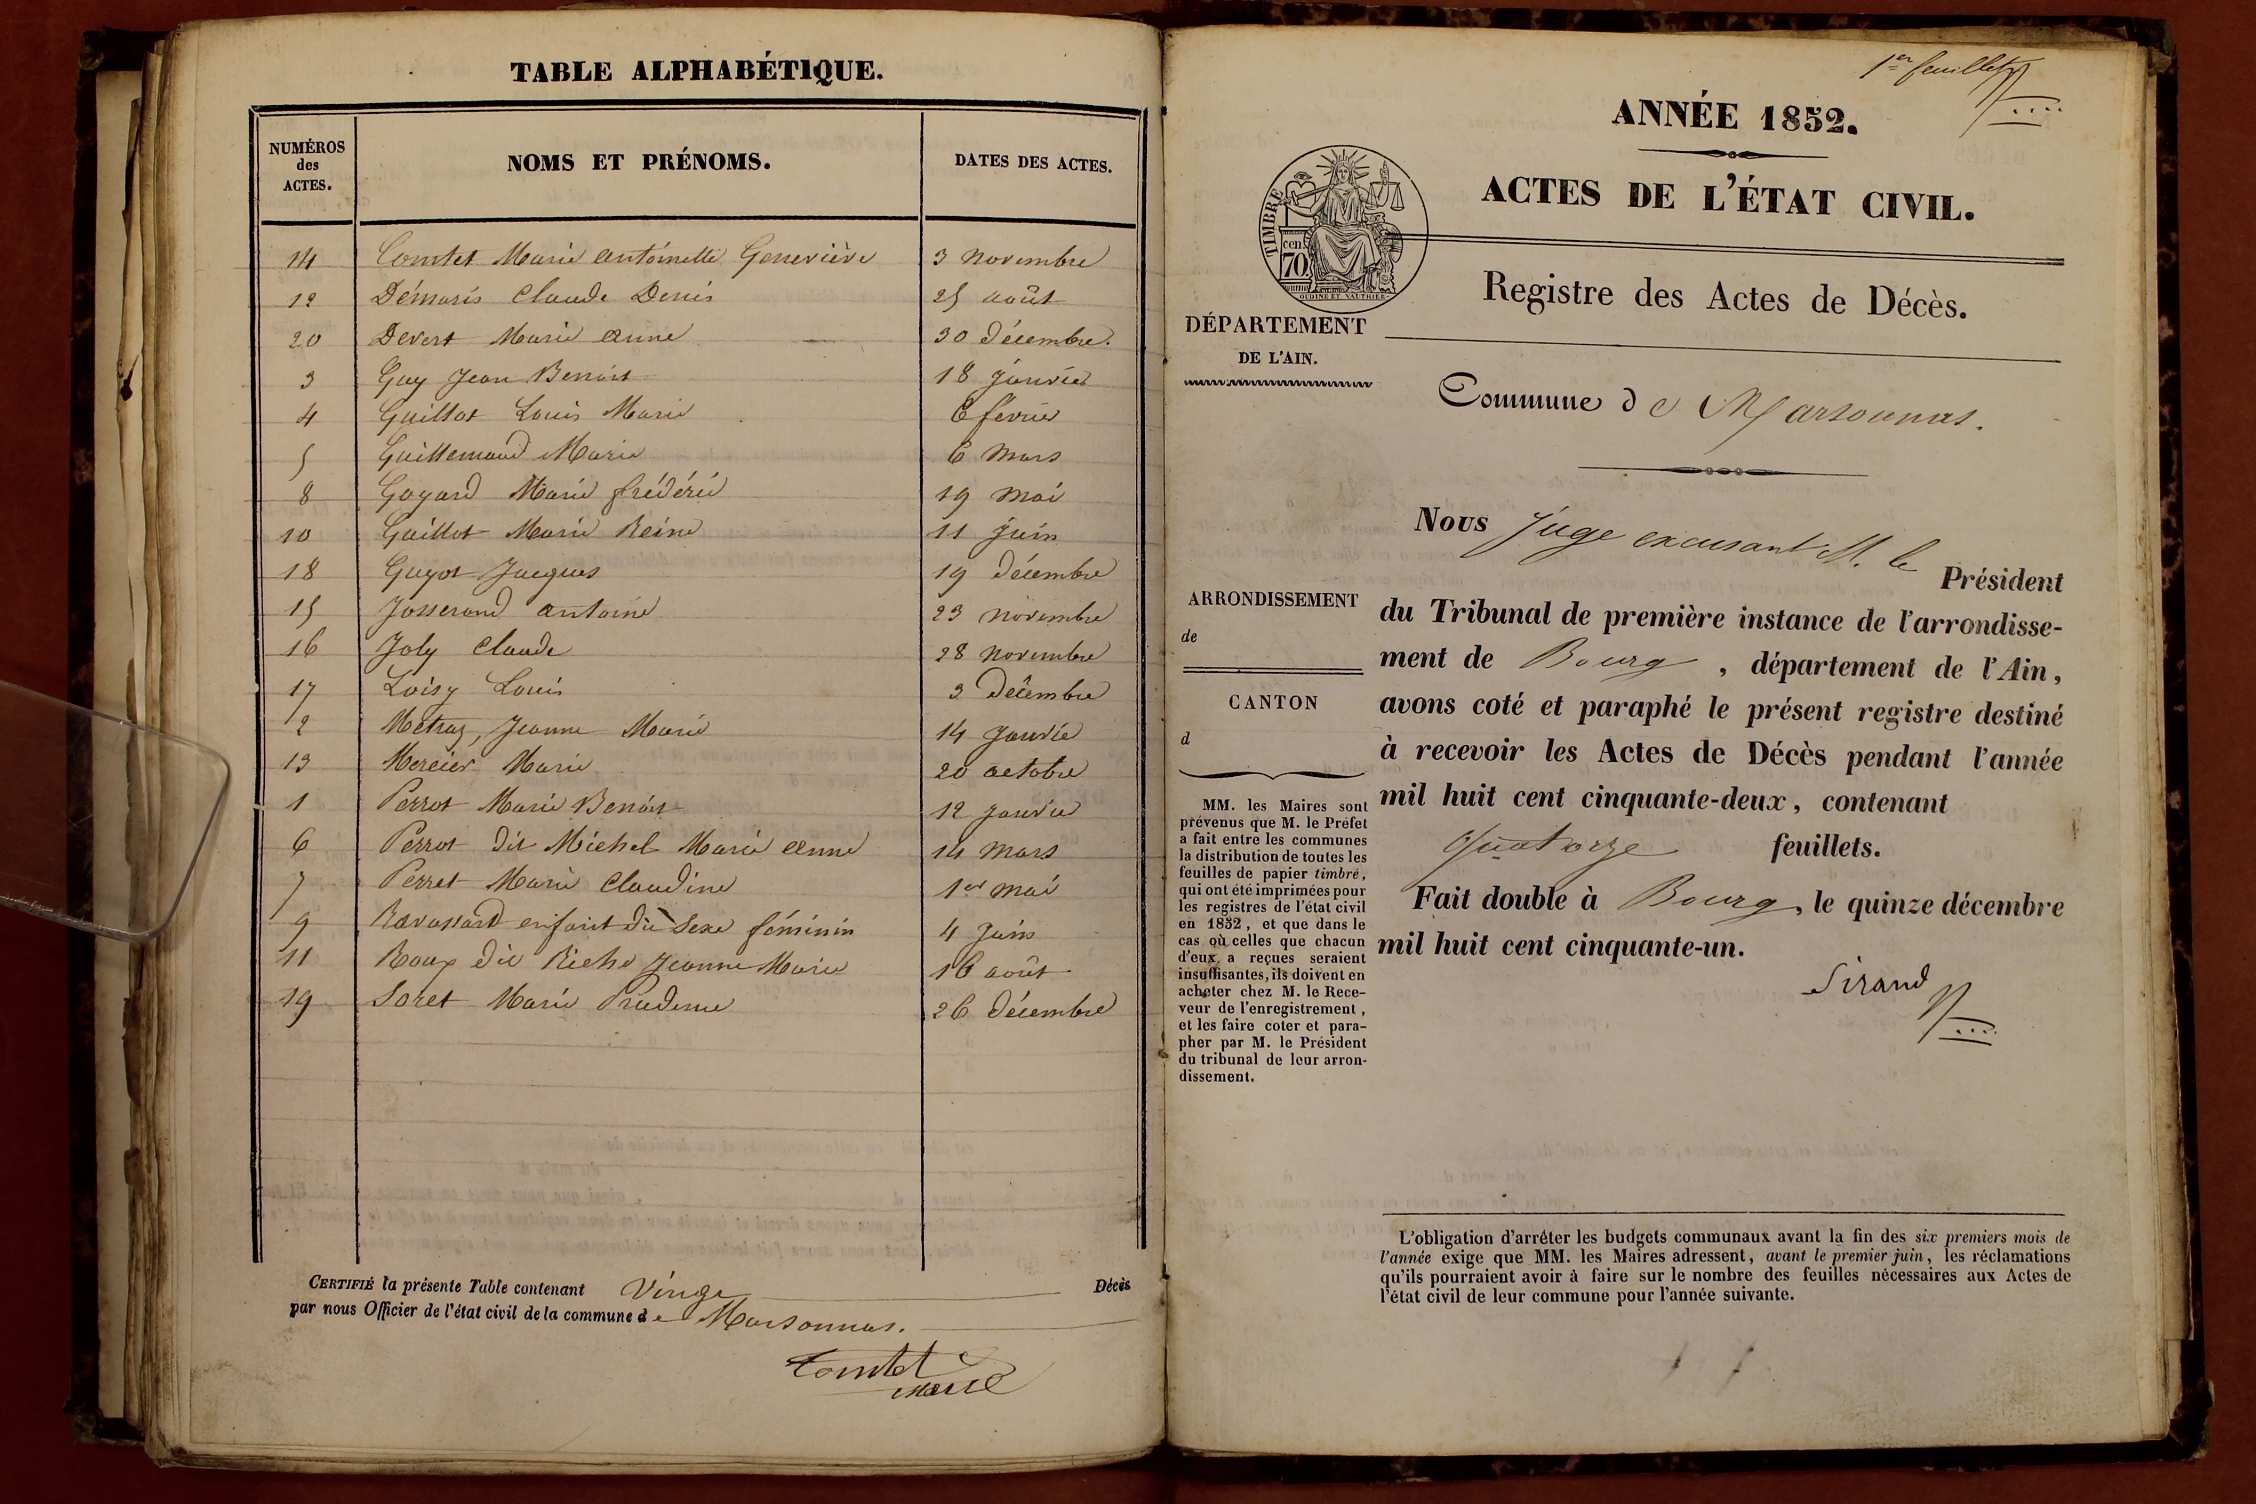 TABLE ALPHABÉTIQUE.
NUMÉROS des ACTES. NOMS ET PRÉNOMS. DATES DES ACTES.
14 Comtet Marie antoinette Geneviève 3 novembre
12 Démaris Claude Denis 25 août
20 Devert Marie anne 30 décembre.
3 Guy Jean Benoit 18 janvier
4 Guillot Louis Marie 6 février
5 Guillemaud Marie 6 mars
8 Goyard Marie frédéric 19 mai
10 Guillot Marie Reine 11 juin
18 Guyot Jacques 19 décembre
15 Josserand antoine 23 novembre
16 Joly Claude 28 novembre
17 Loisy Louis 3 décembre
2 Métraz, Jeanne Marie 14 janvier
13 Mercier Marie 20 octobre
1 Perrot Marie Benoit 12 janvier
6 Perrot dit Michel Marie anne 14 mars
7 Perret Marie Claudine 1er mai
9 Ravassard enfant du sexe féminin 4 juin
11 Roux dit Riche Jeanne Marie 16 août
19 Soret Marie Prudence 26 décembre
CERTIFIÉ la présente Table contenant Vingt Décès
par nous Officier de l'état civil de la commune de Marsonnas.
Comtet
maire
1er feuillet
ANNÉE 1852.
ACTES DE L'ÉTAT CIVIL.
TIMBRE
70 cen.
OUDINÉ ET VAUTHIER
Registre des Actes de Décès.
DÉPARTEMENT
DE L'AIN.
Commune de Marsonnas.
ARRONDISSEMENT
de
CANTON
d
MM. les Maires sont
prévenus que M. le Préfet
a fait entre les communes
la distribution de toutes les
feuilles de papier timbré,
qui ont été imprimées pour
les registres de l'état civil
en 1852, et que dans le
cas où celles que chacun
d'eux a reçues seraient
insuffisantes, ils doivent en
acheter chez M. le Rece-
veur de l'enregistrement,
et les faire coter et para-
pher par M. le Président
du tribunal de leur arron-
dissement.
Nous Juge excusant M. le Président
du Tribunal de première instance de l'arrondisse-
ment de Bourg, département de l'Ain,
avons coté et paraphé le présent registre destiné
à recevoir les Actes de Décès pendant l'année
mil huit cent cinquante-deux, contenant
Quatorze feuillets.
Fait double à Bourg, le quinze décembre
mil huit cent cinquante-un.
Sirand
L'obligation d'arrêter les budgets communaux avant la fin des six premiers mois de
l'année exige que MM. les Maires adressent, avant le premier juin, les réclamations
qu'ils pourraient avoir à faire sur le nombre des feuilles nécessaires aux Actes de
l'état civil de leur commune pour l'année suivante.